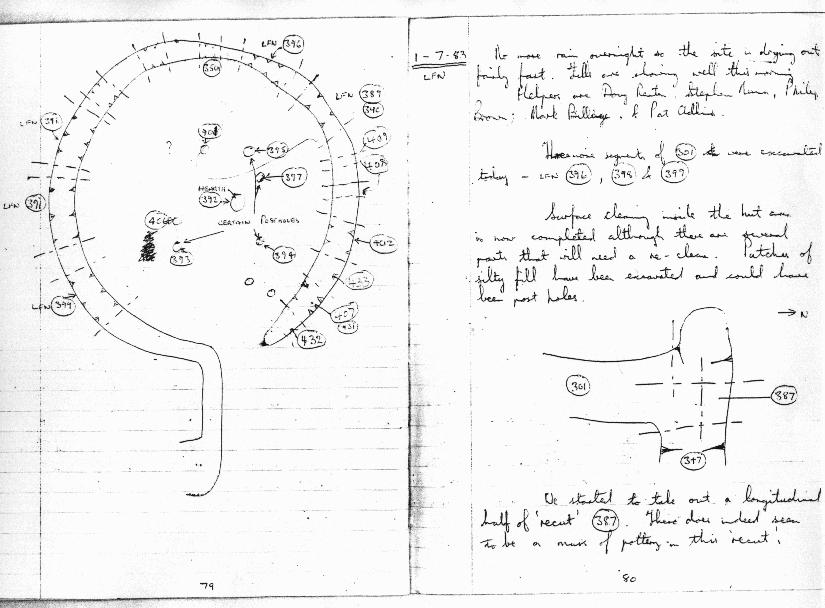 LFN 396
350
LFN 389
390
LFN 391
409
408
?
395
397
HEARTH
392
LFN 391
CERTAIN POSTHOLES
402
393
394
423
LFN 399
407
432
79
1-7-83
LFN
No more rain overnight so the site is drying out
fairly fast. Fills are showing well this morning
Helpers are Doug; Stephen, Philip
Brown; Mark Billinge, & Pat Collins.
Three more segments of 301 were excavated
today - LFN 396, 398 & 399
Surface cleaning inside the hut area
is now completed although there are several
parts that will need a re-clean. Patches of
silty fill have been excavated and could have
been post holes.
→ N
301
387
347
We started to take out a longitudinal
half of 'recut' 387. There does indeed seem
to be a mass of pottery in this 'recut'.
80